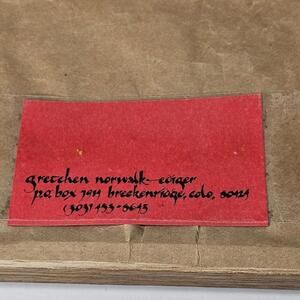 gretchen norwalk-ediger
p.o. box 1914 breckenridge, colo, 80424
(303) 453-8645